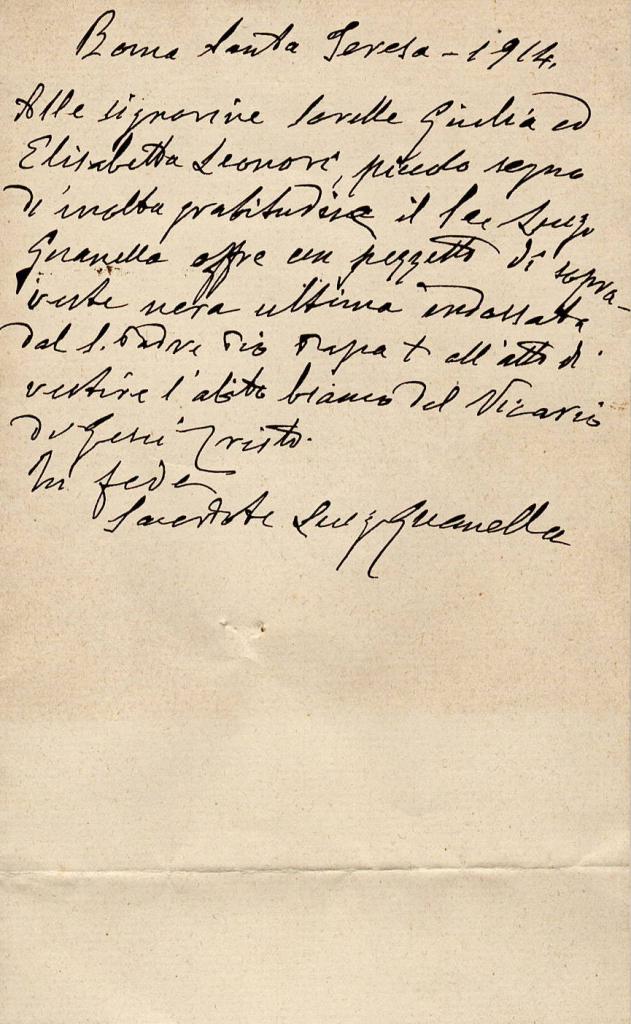 Roma Santa Teresa - 1914.
Alle signorine sorelle Giulia ed
Elisabetta Leonori, piccolo segno
di molta gratitudine il Sac Luigi
Guanella offre un pezzetto di sopra-
veste nera ultima indossata
dal S. Padre Pio Papa X all'atto di
vestire l'abito bianco del Vicario
di Gesù Cristo.
In fede
Sacerdote Luigi Guanella